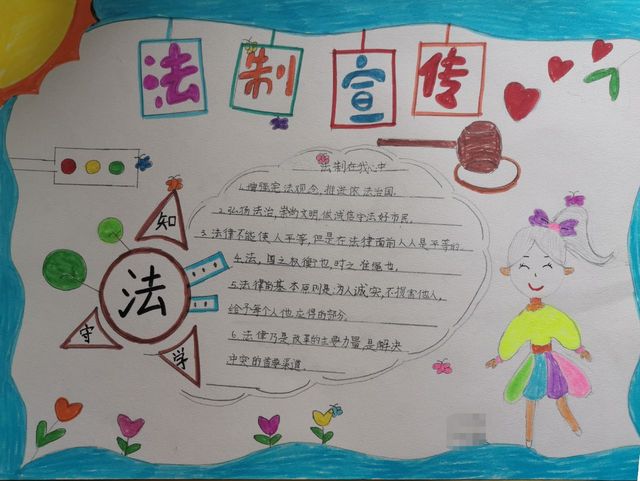 法制宣传
法制在我心中
1.增强宪法观念,推进依法治国.
2.弘扬法治,崇尚文明,做诚信守法好市民.
3.法律不能使人平等,但是在法律面前人人是平等的.
4.法,国之权衡也,时之准绳也.
5.法律的基本原则是:为人诚实,不损害他人,
给予每个人他应得的部分.
6.法律乃是改革的主要力量,是解决
冲突的首要渠道.
知
法
守
学